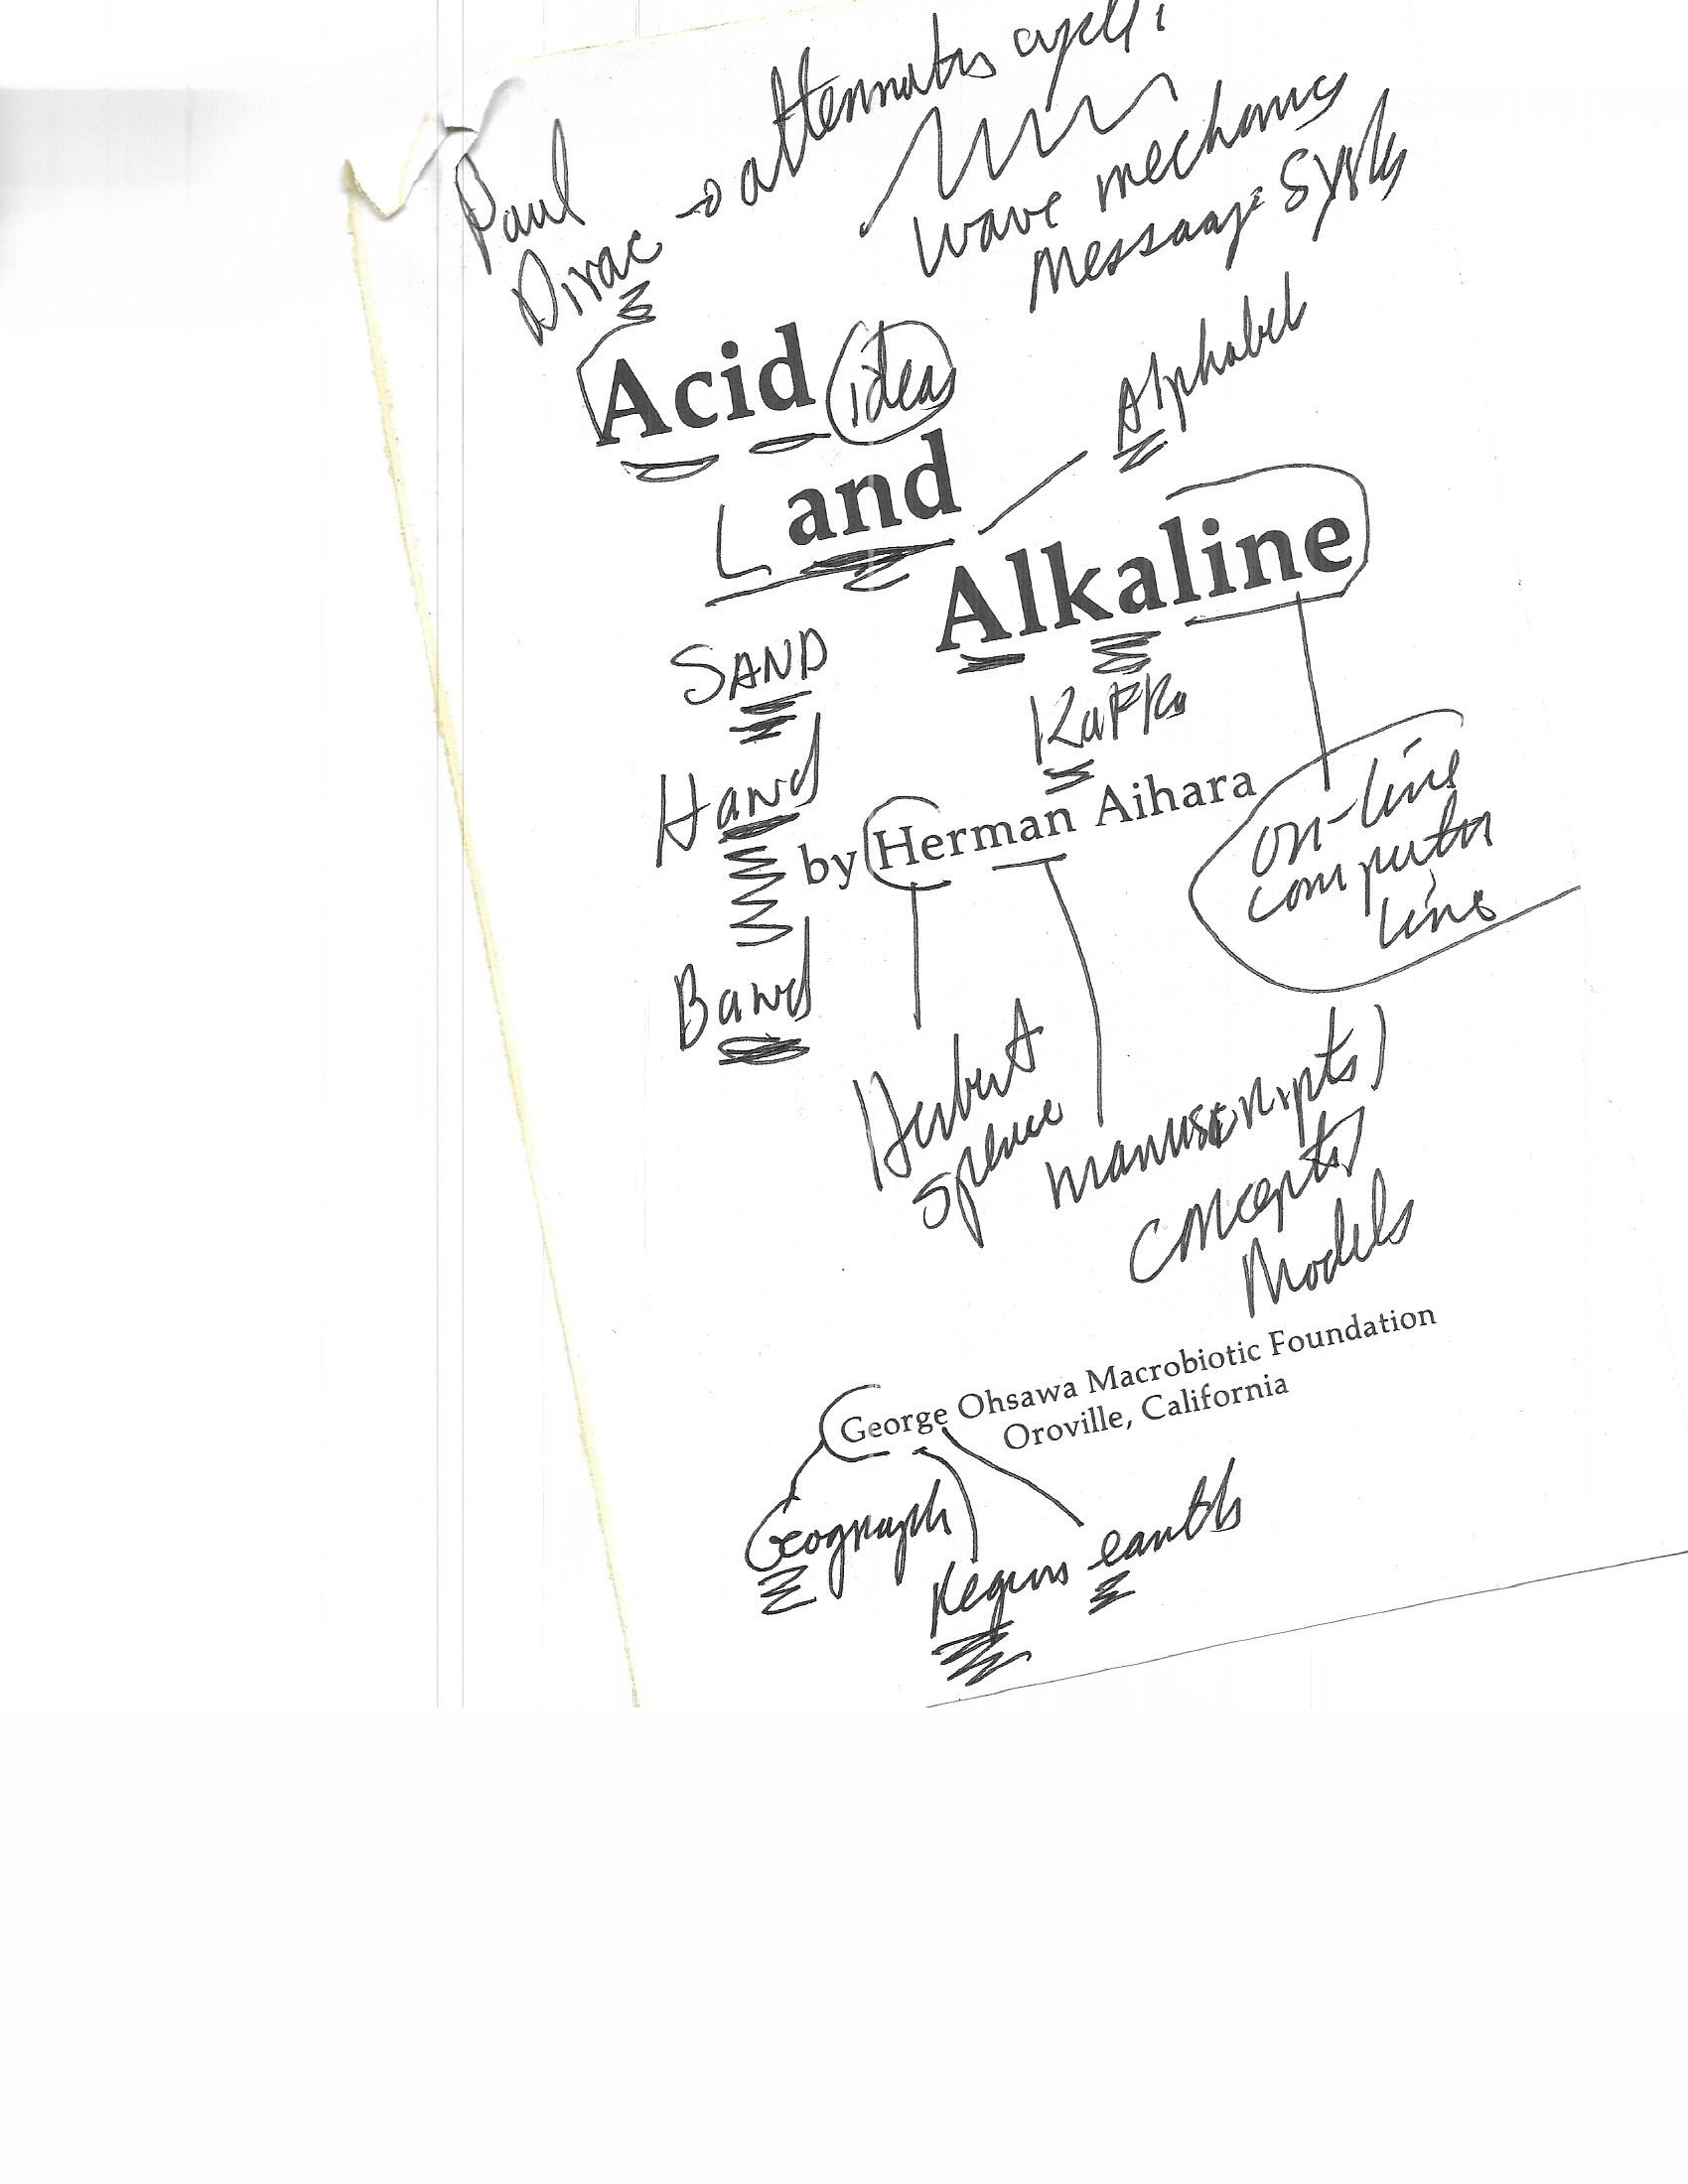 Paul
Dirac
wave mechanics
message
Acid ideas
Alphabet
L and
Alkaline
SAND
Kafka
Hand
by Herman Aihara
on-line
computer
line
Band
Herbert
manuscripts)
concepts)
Models
George Ohsawa Macrobiotic Foundation
Oroville, California
Geograph
earth